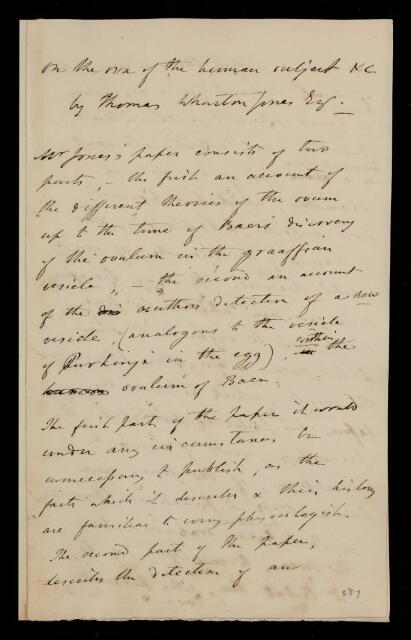 On the ova of the human subject &c
by Thomas Wharton Jones Esq. _
Mr Jones's paper consists of two
parts, - the first an account of
the different theories of the ovum
up to the time of Baer's discovery
of the ovulum in the graaffian
vesicle, - the second an account
of the author's detection of a new
vesicle (analogous to the vesicle
of Purkinje in the egg), within the
ovulum of Baer.
The first part of the paper it would
under any circumstances be
unnecessary to publish, as the
facts which it describes & their history
are familiar to every physiologist.
The second part of the paper,
describes the detection of an
287